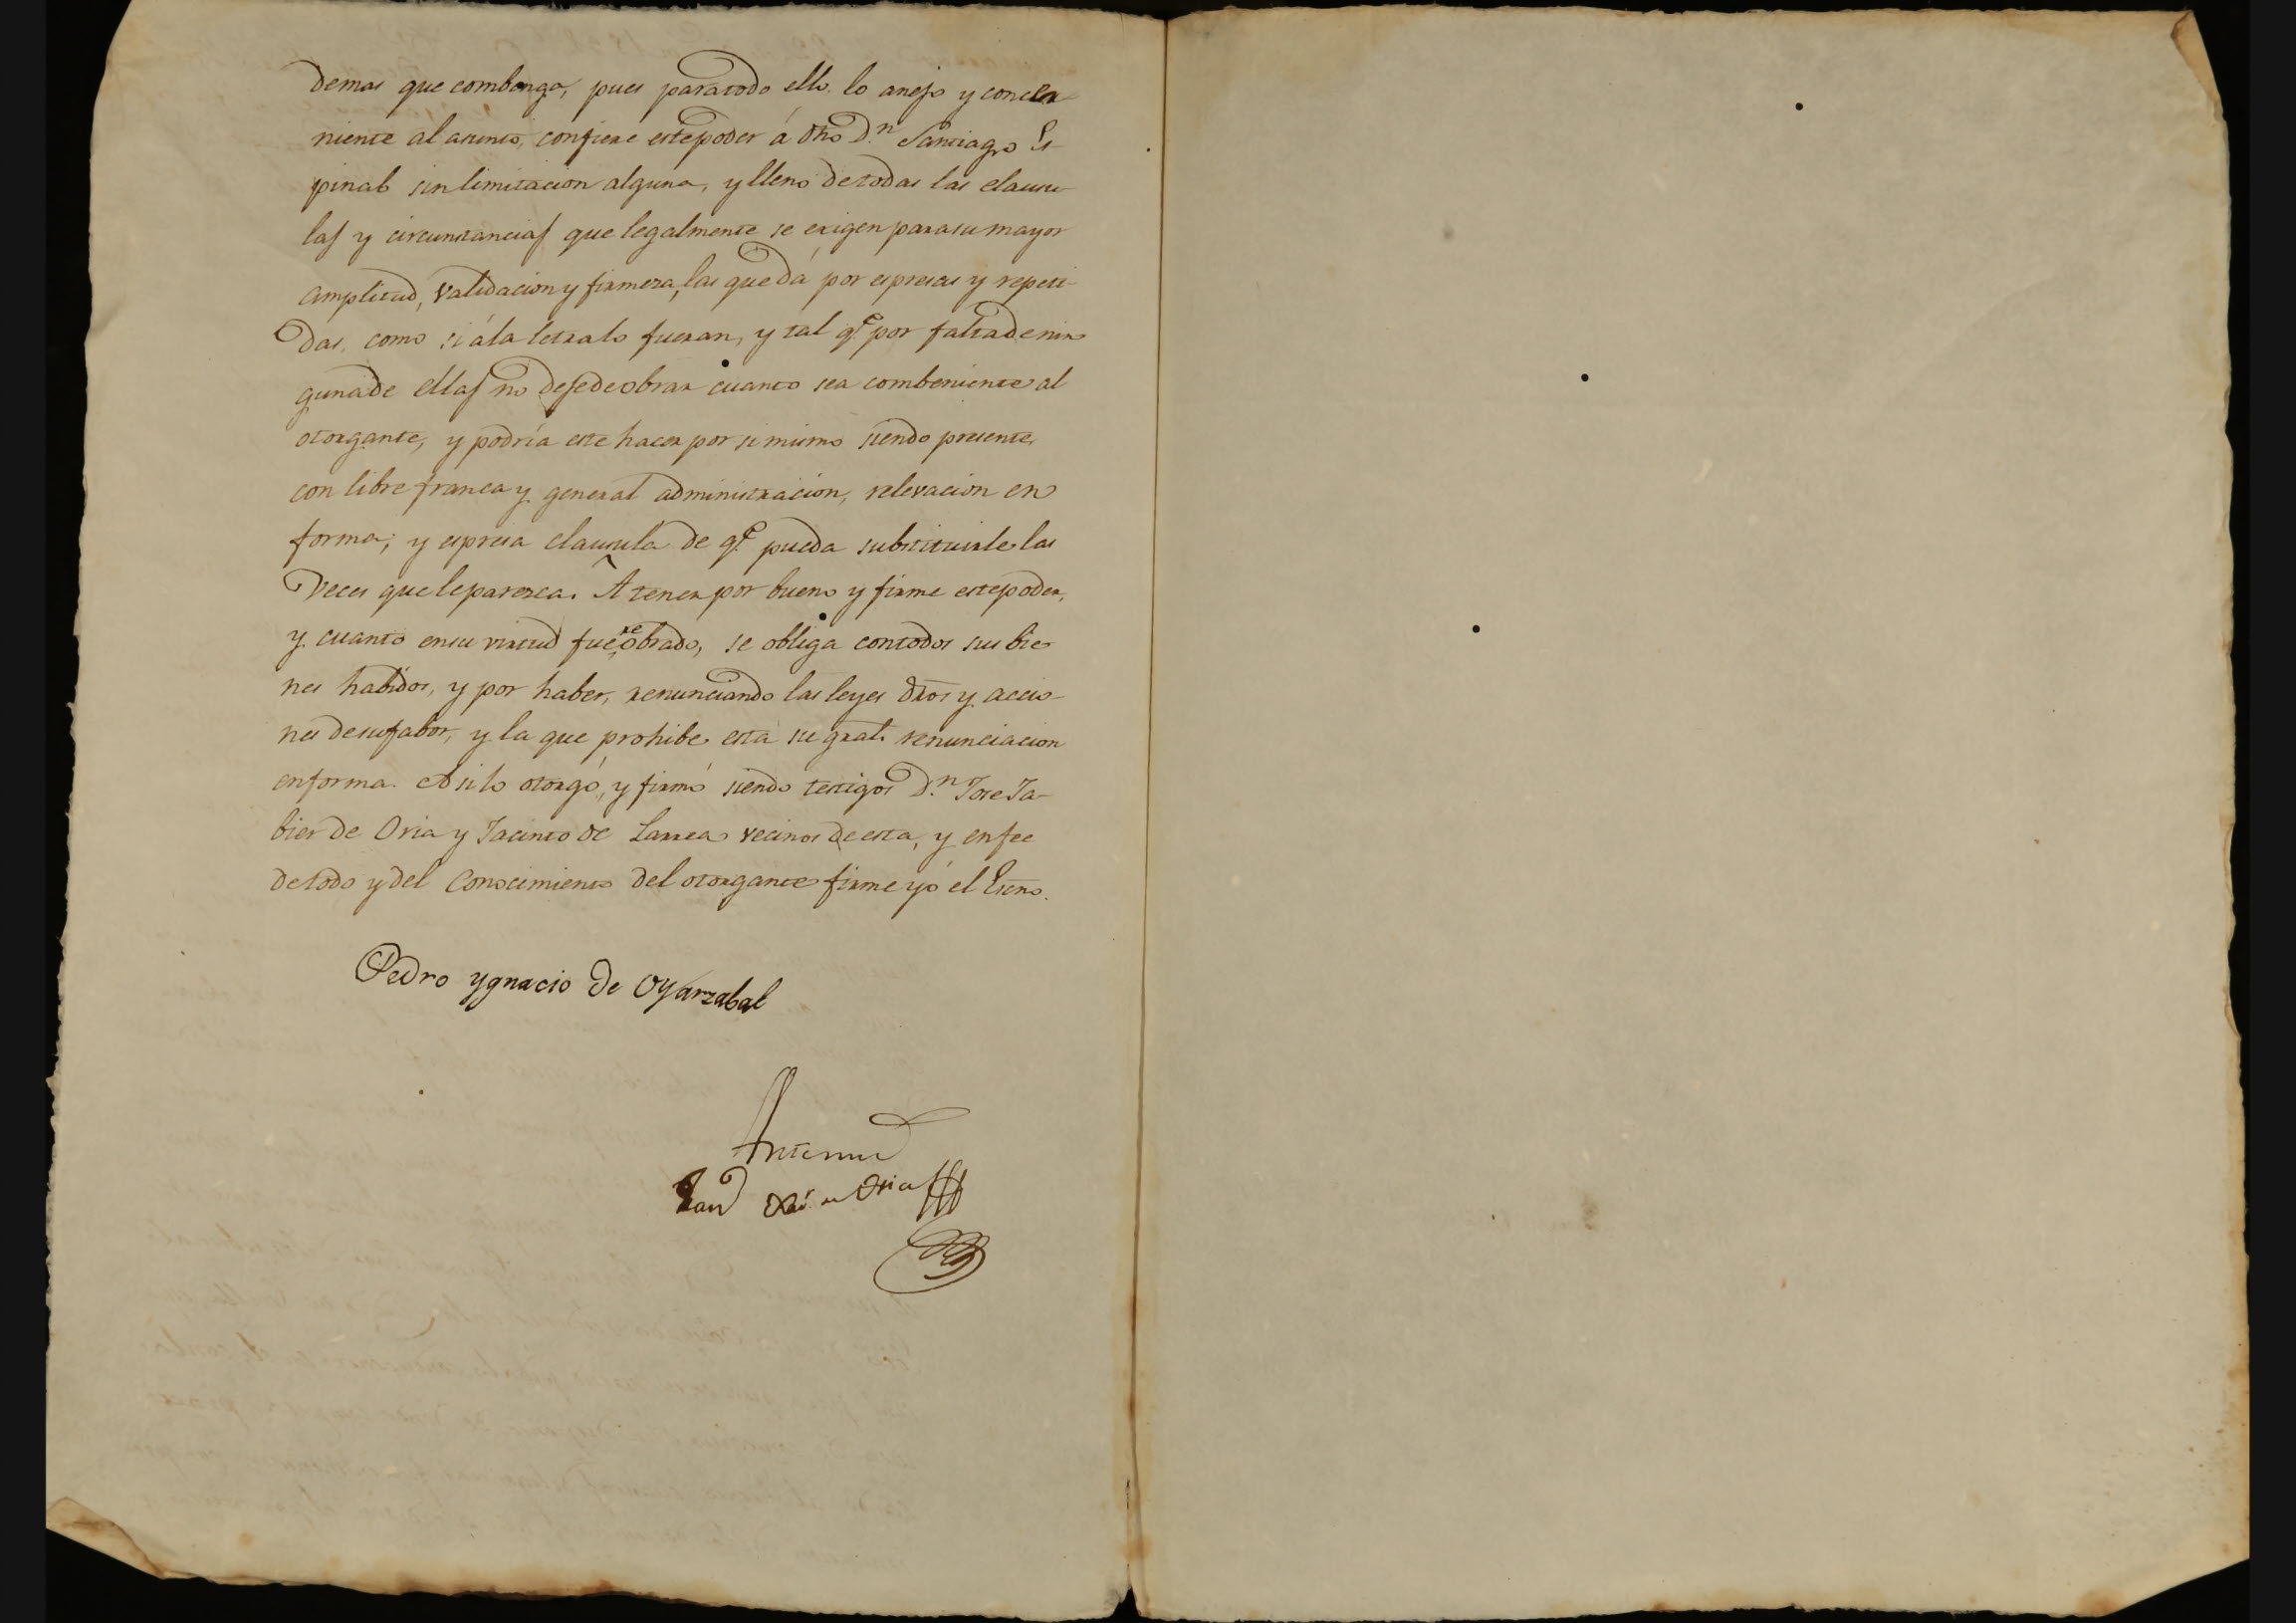 demas que combenga, pues para todo ello lo anejo y concer-
niente al asunto, confiere este poder á dho D.n Santiago Es-
pinal sin limitacion alguna, y lleno de todas las clausu-
las y circunstancias que legalmente se exigen para su mayor
amplitud, validacion y firmeza, las que dá por espresas y repeti-
das, como si á la letra lo fueran, y tal q.e por falta de nin
guna de ellas no deje de obrar cuanto sea combeniente al
otorgante, y podría este hacer por si mismo siendo presente,
con libre franca y general administracion, relevacion en
forma; y espresa clausula de q.e pueda substituirle las
veces que le paresca. A tener por bueno y firme este poder,
y cuanto en su virtud fuere obrado, se obliga con todos sus bie
nes habidos, y por haber, renunciando las leyes dros y accio-
nes de su fabor, y la que prohibe esta su gral. renunciacion
en forma. Asi lo otorgó, y firmó siendo testigos D.n Jose Ja-
bier de Oria y Jacinto de Larrea vecinos de esta, y en fee
de todo y del conocimiento del otorgante firme yó el Esno.
Pedro ygnacio de Oyarzabal
Antemi
de Oria